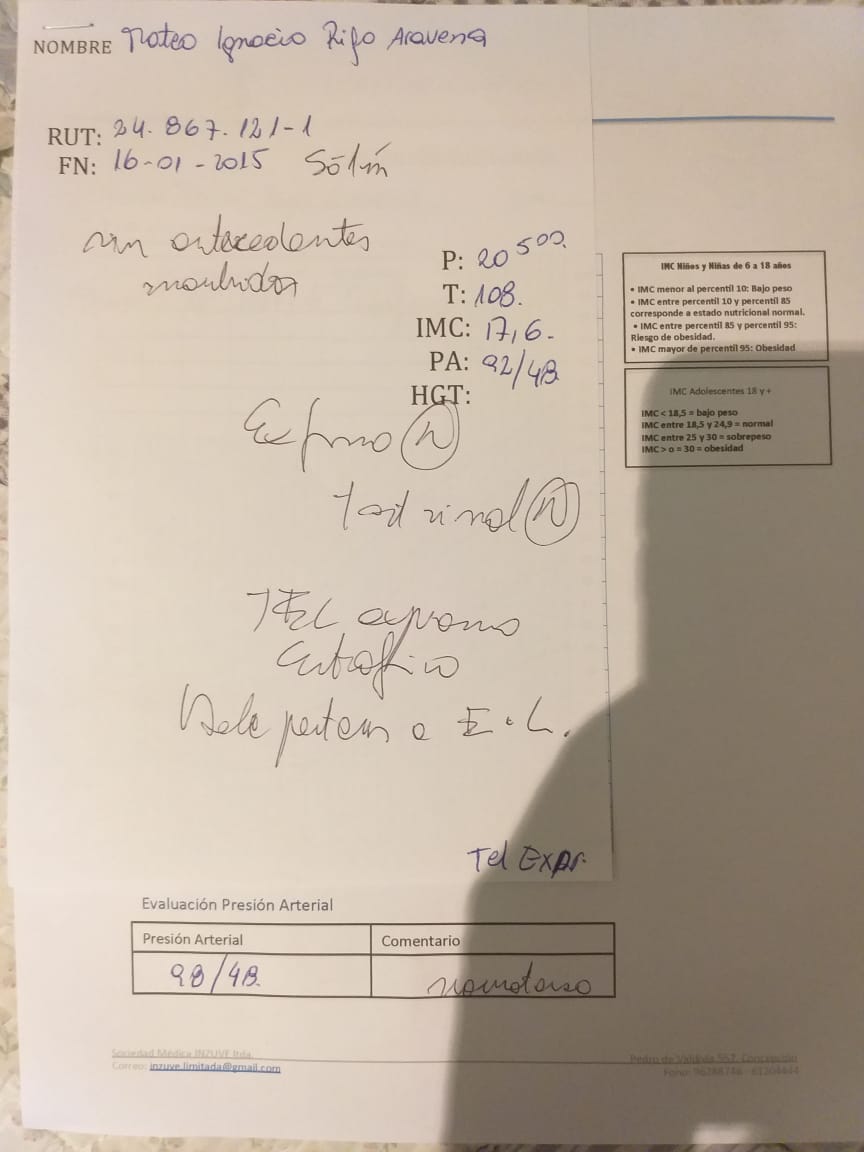 NOMBRE Mateo Ignacio Rifo Aravena
RUT: 24.867.121-1
FN: 16-01-2015
sin antecedentes
morbidos
P: 20 500.
T: 108.
IMC: 17,6.
PA: 92/48
HGT:
Ex fisico (N)
(N)
TEL expresivo
Eutrofico
a E.L.
Tel Expr.
IMC Niños y Niñas de 6 a 18 años
• IMC menor al percentil 10: Bajo peso
• IMC entre percentil 10 y percentil 85
corresponde a estado nutricional normal.
• IMC entre percentil 85 y percentil 95:
Riesgo de obesidad.
• IMC mayor de percentil 95: Obesidad
IMC Adolescentes 18 y +
IMC < 18,5 = bajo peso
IMC entre 18,5 y 24,9 = normal
IMC entre 25 y 30 = sobrepeso
IMC > o = 30 = obesidad
Evaluación Presión Arterial
Presión Arterial Comentario
98/48. normotenso
Sociedad Médica INZUVE ltda.
Correo: inzuve.limitada@gmail.com
Pedro de Valdivia 557, Concepción
Fono: